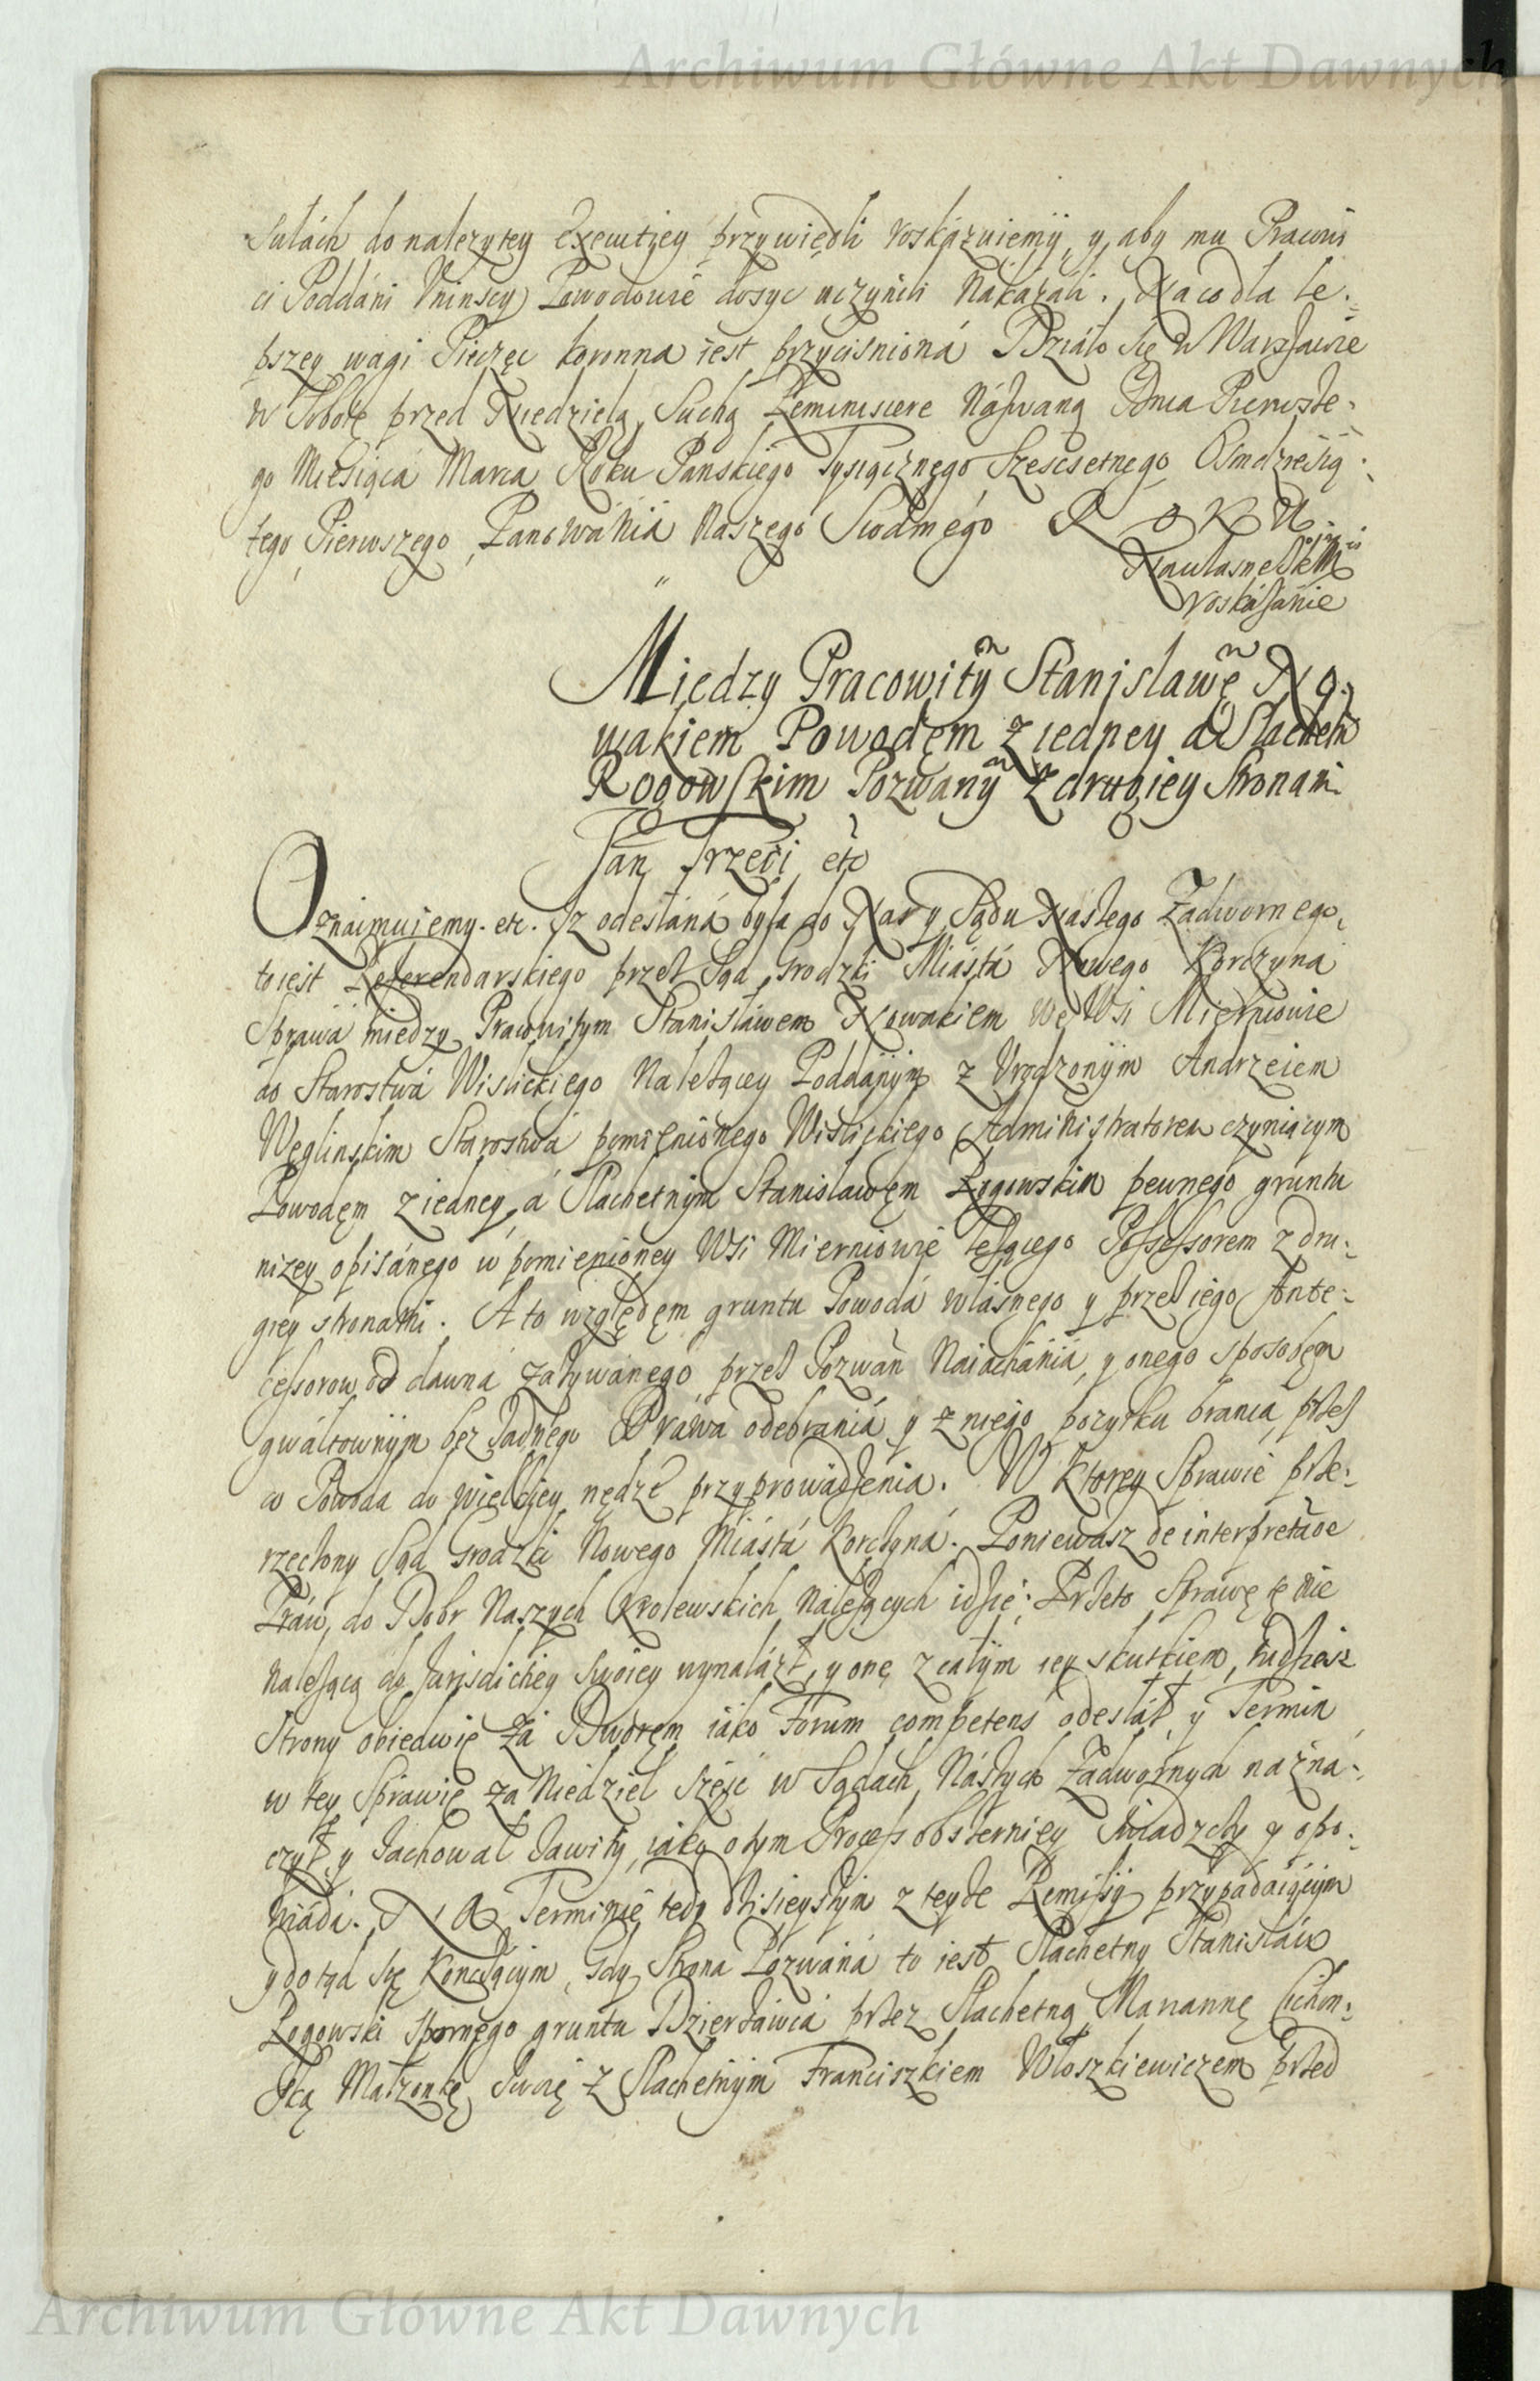 Archiwum Główne Akt Dawnych
sulách do nalezytey Exewtiey przywiedli roskázuiemy, y aby mu Pracowi
ci Poddáni Vninscy Powodowie dosyc uczynili Nakázali. Na co dla le-
pszey wagi Pieczęc koronna iest przycisniona Dziáło się w Warszawie
w Sobotę przed Niedzielą Suchą Reminiscere Názwaną Dnia Pierwsze-
go Miesiąca Marca Roku Panskiego Tysiącznego Szescsetnego Osmdziesią-
tego Pierwszego Panowánia Naszego Siodmego R O K U
Na własne JKM
roskázánie
Miedzy Pracowitym Stanisławem No-
wakiem Powodem z iedney a Slachetn
Rogowskim Pozwanym z drugiey Stronami
Jan Trzeci etc
Oznaimuiemy. etc. Iz odesłáná była do Nas y Sądu Naszego Zadwornego,
to iest Referendarskiego przez Sąd Grodzki Miástá Nowego Korczyna
Spráwá miedzy Pracowitym Stanisławem Nowakiem we Wsi Miernowie
do Starostwá Wislickiego Należącey Poddanym z Vrodzonym Andrzeiem
Węglinskim Starostwá pomienionego Wislickiego Administratorem czyniącym
Powodem z iedney, á Slachetnym Stanisławem Rogowskim pewnego gruntu
nizey opisánego w pomienioney Wsi Miernowie leżącego Possessorem z dru-
giey stronami. A to względem gruntu Powodá własnego y przez iego Ante-
cessorow od dawná zażywánego przez Pozwan Naiachánia, y onego sposobem
gwałtownym bez żadnego Práwa odebrániá y z niego pożytku brania, przez
co Powoda do wielkiey nędze przyprowadzenia. W ktorey Sprawie prze-
rzeczony Sąd Grodzki Nowego Miástá Korczyná. Poniewasz de interpretatione
Práw, do Dobr Naszych Krolewskich Należących idzie; Przeto Sprawę tę nie
należącą do Jurisdictiey swoiey wynalázł, y onę z całym iey skutkiem, tudziesz
Strony obiedwie Zá Dworem iáko Forum competens odesłáł, y Termin
w tey Sprawie za Niedziel szesc w Sądach Nászych Zadwornych názná-
czył y záchował záwity, iáko o tym Process obszerniey świadczy y opo-
wiada. NA Terminie tedy dzisieyszym z teyże Remissy przypadaiącym
y dotąd się Kończącym, Gdy Strona Pozwána to iest Slachetny Stanisław
Rogowski spornego gruntu Dzierżawcá przez Slachetną Mariannę Cichon-
ską Małzonkę swoię z Slachetnym Franciszkiem Włoszkiewiczem przed
Archiwum Główne Akt Dawnych